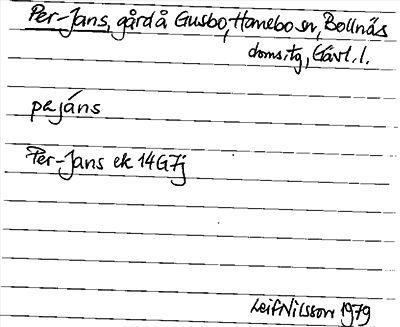 Per-Jans, gård å Gusbo, Hanebo sn, Bollnäs
doms.tg, Gävl. l.
pɐjáns
Per-Jans ek 14G7j
Leif Nilsson 1979